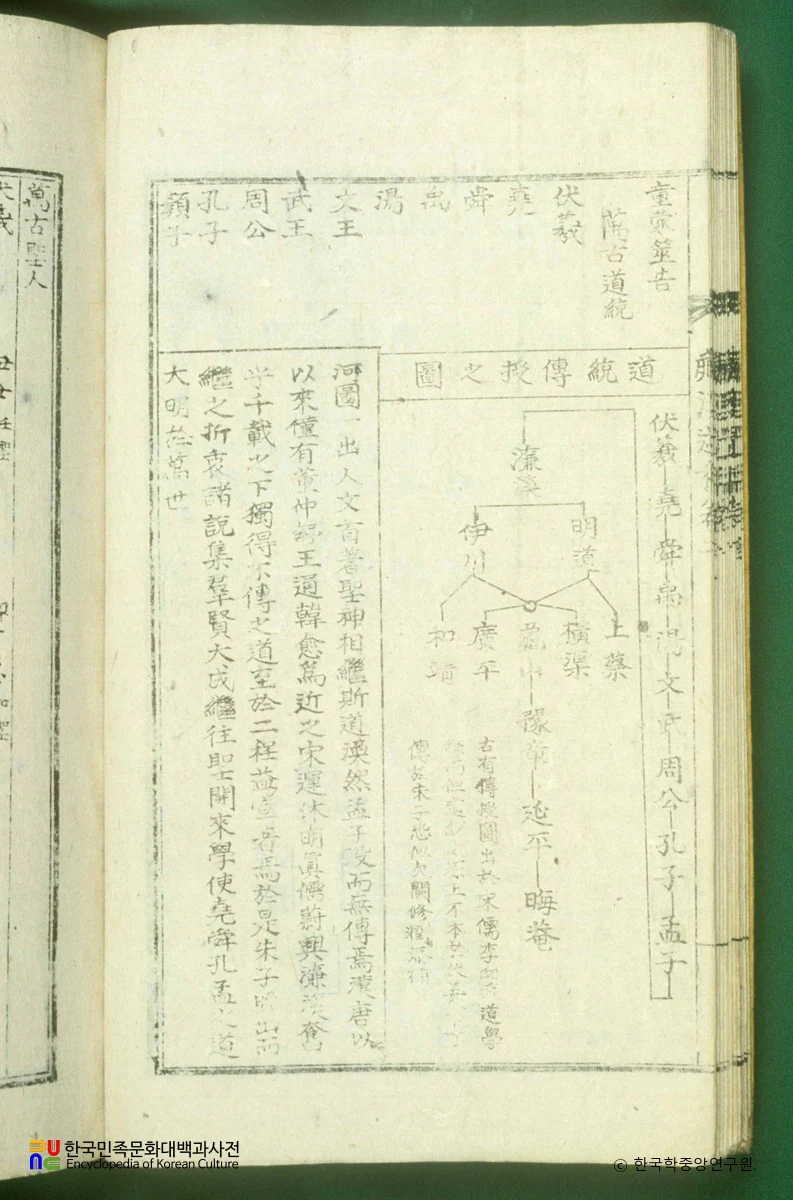 童蒙筮告
萬古道統
伏羲
堯
舜
禹
湯
文王
武王
周公
孔子
顔子
道統傳授之圖
伏羲 堯 舜 禹 湯 文 武 周公 孔子 孟子
濂溪
明道
伊川
上蔡
橫渠
龜山 豫章 延平 晦菴
廣平
和靖
古有傳授圖出於宋儒李 道學
傳於宋子 欠闕修
河圖一出人文首著聖神相繼斯道渙然孟子沒而無傳焉漢唐以
以來僅有董仲舒王通韓愈爲近之宋運休明眞儒蔚興濂溪奮
乎千載之下獨得不傳之道至於二程益宣著焉於是朱子 出而
繼之折衷諸說集羣賢大成繼往聖開來學使堯舜孔孟之道
大明於萬世
萬古聖人
한국민족문화대백과사전
Encyclopedia of Korean Culture
ⓒ 한국학중앙연구원.